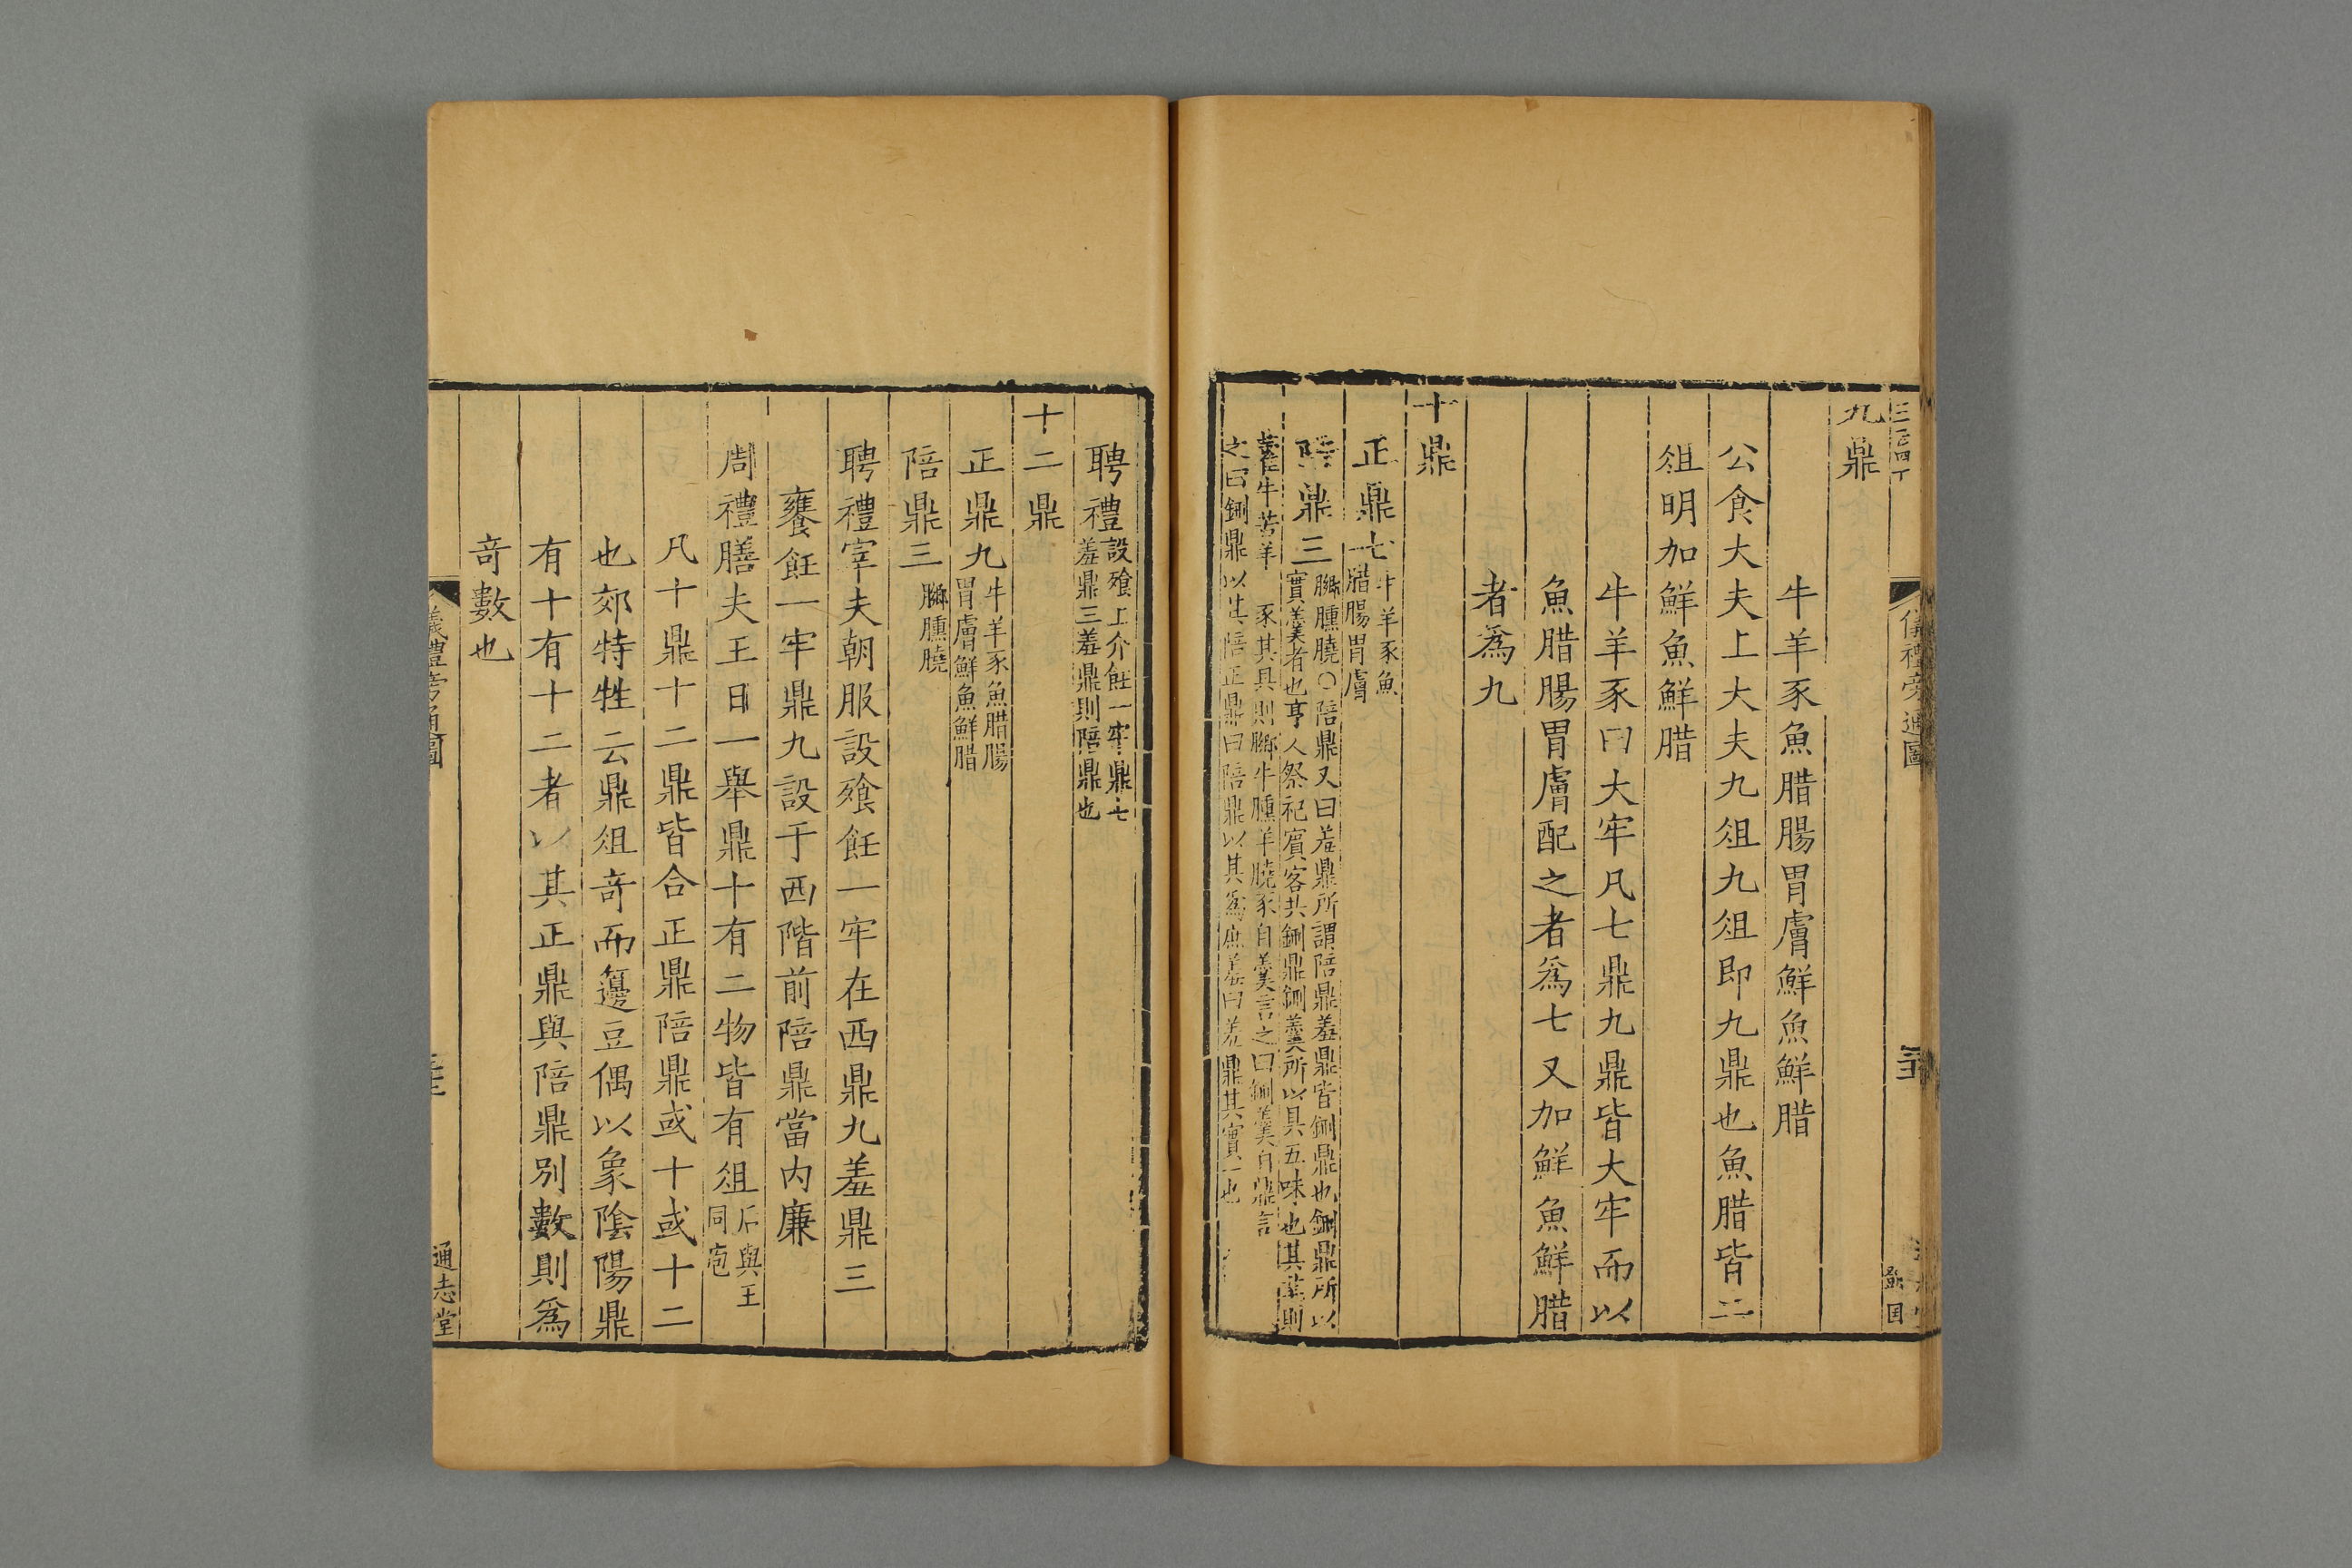 九鼎
牛羊豕魚腊腸胃膚鮮魚鮮腊
公食大夫上大夫九俎九俎即九鼎也魚腊皆二
俎明加鮮魚鮮腊
牛羊豕曰大牢凡七鼎九鼎皆大牢而以
魚腊腸胃膚配之者爲七又加鮮魚鮮腊
者爲九
十鼎
正鼎七牛羊豕魚
腊腸胃膚
陪鼎三膷臐膮○陪鼎又曰羞鼎所謂陪鼎羞鼎皆鉶鼎也鉶鼎所以
實羹者也亨人祭祀賓客共鉶鼎鉶羹所以具五味也其芼則
藿牛苦羊 豕其具則膷牛臐羊膮豕自羹言之曰鉶羹自鼎言
之曰鉶鼎以其陪正鼎曰陪鼎以其爲庶羞曰羞鼎其實一也
儀禮旁通圖
聘禮設飧上介飪一牢鼎七
羞鼎三羞鼎則陪鼎也
十二鼎
正鼎九牛羊豕魚腊腸
胃膚鮮魚鮮腊
陪鼎三膷臐膮
聘禮宰夫朝服設飧飪一牢在西鼎九羞鼎三
饔飪一牢鼎九設于西階前陪鼎當内廉
周禮膳夫王日一舉鼎十有二物皆有俎后與王
同庖
凡十鼎十二鼎皆合正鼎陪鼎或十或十二
也郊特牲云鼎俎奇而籩豆偶以象陰陽鼎
有十有十二者以其正鼎與陪鼎別數則爲
奇數也
儀禮旁通圖
通志堂